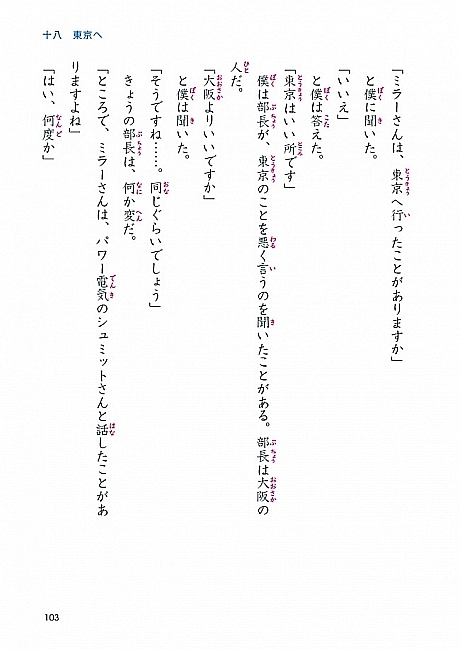 十八 東京へ
「ミラーさんは、東京へ行ったことがありますか」
と僕に聞いた。
「いいえ」
と僕は答えた。
「東京はいい所です」
僕は部長が、東京のことを悪く言うのを聞いたことがある。部長は大阪の
人だ。
「大阪よりいいですか」
と僕は聞いた。
「そうですね……。同じぐらいでしょう」
きょうの部長は、何か変だ。
「ところで、ミラーさんは、パワー電気のシュミットさんと話したことがあ
りますよね」
「はい、何度か」
103